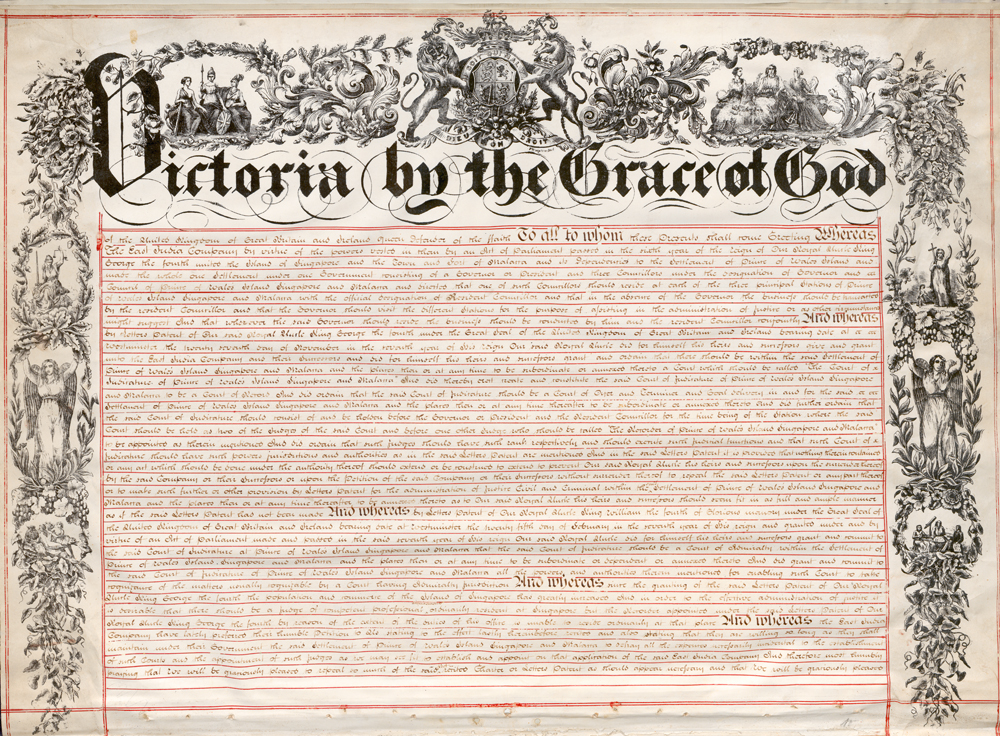 Victoria by the Grace of God
of the United Kingdom of Great Britain and Ireland Queen Defender of the Faith To all to whom these Presents shall come Greeting Whereas
The East India Company by virtue of the powers vested in them by an Act of Parliament passed in the sixth year of the reign of Our Royal Uncle King
George the fourth unite the Island of Singapore and the Town and Fort of Malacca and its Dependencies to the Settlement of Prince of Wales Island and
made the whole one Settlement under one Government consisting of a Governor or President and three Councillors under the designation of Governor and
Council of Prince of Wales Island Singapore and Malacca and directed that one of such Councillors should reside at each of the three principal Stations of Prince
of Wales Island Singapore and Malacca with the official designation of Resident Councillor and that in the absence of the Governor the business should be transacted
by the resident Councillor and that the Governor should visit the different Stations for the purpose of assisting in the administration of Justice or as other circumstances
might suggest And that wherever the said Governor should reside the business should be conducted by him and the resident Councillor conjointly And whereas
by Letters Patent of Our said Royal Uncle King George the fourth under the Great Seal of the United Kingdom of Great Britain and Ireland bearing date at
Westminster the twenty seventh day of November in the seventh year of His reign Our said Royal Uncle did for himself his heirs and successors give and grant
unto the East India Company and their Successors and did for himself his heirs and successors grant and ordain that there should be within the said Settlement of
Prince of Wales Island Singapore and Malacca and the places then or at any time to be subordinate or annexed thereto a Court which should be called "The Court of
Judicature of Prince of Wales Island Singapore and Malacca" And did thereby erect create and constitute the said Court of Judicature of Prince of Wales Island Singapore
and Malacca to be a Court of Record And did ordain that the said Court of Judicature should be a Court of Oyer and Terminer and Gaol delivery in and for the said
Settlement of Prince of Wales Island Singapore and Malacca and the places then or at any time thereafter to be subordinate or annexed thereto And did further ordain that
the said Court of Judicature should consist of and be holden before the Governor or President and the Resident Councillor for the time being of the Station where the said
Court should be held as two of the Judges of the said Court and before one other Judge who should be called "The Recorder of Prince of Wales Island Singapore and Malacca"
to be appointed as therein mentioned And did ordain that such Judges should have such rank respectively and should execute such judicial functions and that such Court of
Judicature should have such powers jurisdictions and authorities as in the said Letters Patent are mentioned And in the said Letters Patent it is provided that nothing therein contained
or any act which should be done under the authority thereof should extend or be construed to extend to prevent Our said Royal Uncle his heirs and successors upon the surrender thereof
by the said Company or their Successors or upon the Petition of the said Company or their Successors without surrender thereof to repeal the said Letters Patent or any part thereof
or to make such further or other provision by Letters Patent for the administration of Justice Civil and Criminal within the Settlement of Prince of Wales Island Singapore and
Malacca and the places then or at any time thereafter to be annexed thereto as to Our said Royal Uncle his heirs and successors should seem fit in as full and ample manner
as if the said Letters Patent had not been made And whereas by Letters Patent of Our Royal Uncle King William the fourth of Glorious memory under the Great Seal of
the United Kingdom of Great Britain and Ireland bearing date at Westminster the twenty fifth day of February in the seventh year of His reign and granted under and by
virtue of an Act of Parliament made and passed in the said seventh year of His reign Our said Royal Uncle did for himself his heirs and successors grant and commit to
the said Court of Judicature at Prince of Wales Island Singapore and Malacca that the said Court of Judicature should be a Court of Admiralty within the Settlement of
Prince of Wales Island Singapore and Malacca and the places then or at any time to be subordinate or dependant or annexed thereto And did grant and commit to
the said Court of Judicature of Prince of Wales Island Singapore and Malacca all the powers and authorities therein mentioned for enabling such Court to take
cognizance of the matters usually cognizable by a Court having Admiralty jurisdiction And whereas since the granting of the said Letters Patent of Our Royal
Uncle King George the fourth the population and commerce of the Island of Singapore has greatly increased And in order to the effective administration of justice it
is desirable that there should be a Judge of competent professional ordinarily resident at Singapore but the Recorder appointed under the said Letters Patent of Our
Royal Uncle King George the fourth by reason of the extent of the duties of his office is unable to reside ordinarily at that place And whereas the East India
Company have lately preferred their humble Petition to Us stating to the effect lastly hereinbefore recited and also stating that they are willing so long as they shall
maintain under their Government the said Settlement of Prince of Wales Island Singapore and Malacca to defray all the expences necessarily incurred in the
of such Courts and the appointment of such Judges as we may see fit to establish and appoint on that application of the said East India Company And therefore most humbly
praying that We will be graciously pleased to repeal so much of the said recited Charter or Letters Patent as should appear necessary and that We will be graciously pleased